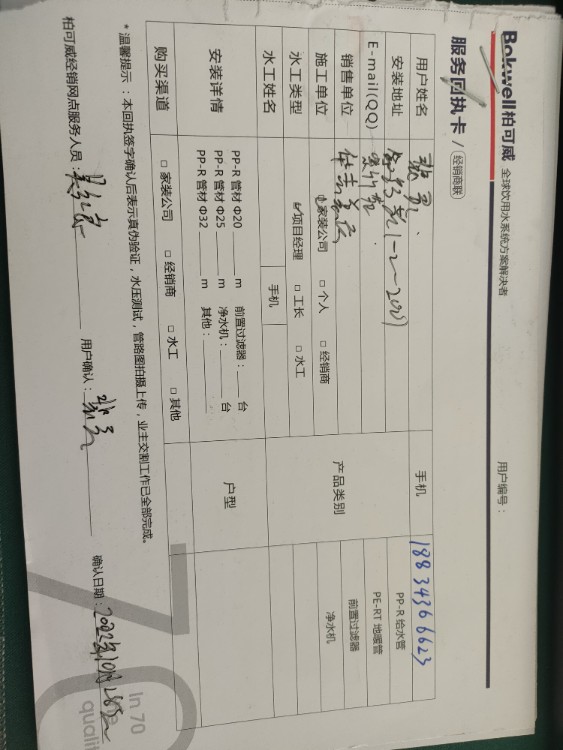 Bokwell 柏可威 全球饮用水系统方案解决者
用户编号：
服务回执卡 / 经销商联
用户姓名 手机 18834366623
安装地址 1-2-2001 产品类别 PP-R 给水管
E-mail(QQ) PE-RT 地暖管
销售单位 前置过滤器
施工单位 家装公司 □ 个人 □ 经销商 净水机
水工类型 项目经理 □ 工长 □ 水工
水工姓名 手机
安装详情 PP-R 管材 Φ20 ____ m 前置过滤器：____ 台 户型
PP-R 管材 Φ25 ____ m 净水机：____ 台
PP-R 管材 Φ32 ____ m 其他：____
购买渠道 □ 家装公司 □ 经销商 □ 水工 □ 其他
*温馨提示：本回执签字确认后表示真伪验证，水压测试，管路图拍摄上传，业主交割工作已全部完成。
柏可威经销网点服务人员： 用户确认： 确认日期：2022年10月26日
In 70
qualit